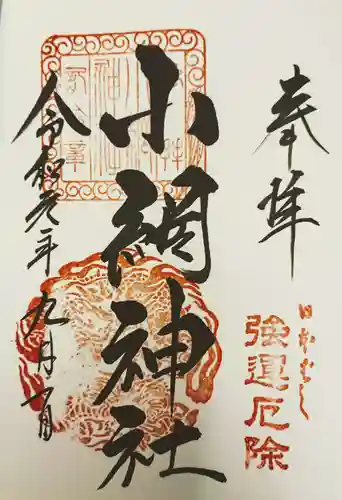 奉拝
日本ばし
強運厄除
小網神社
令和元年九月一日